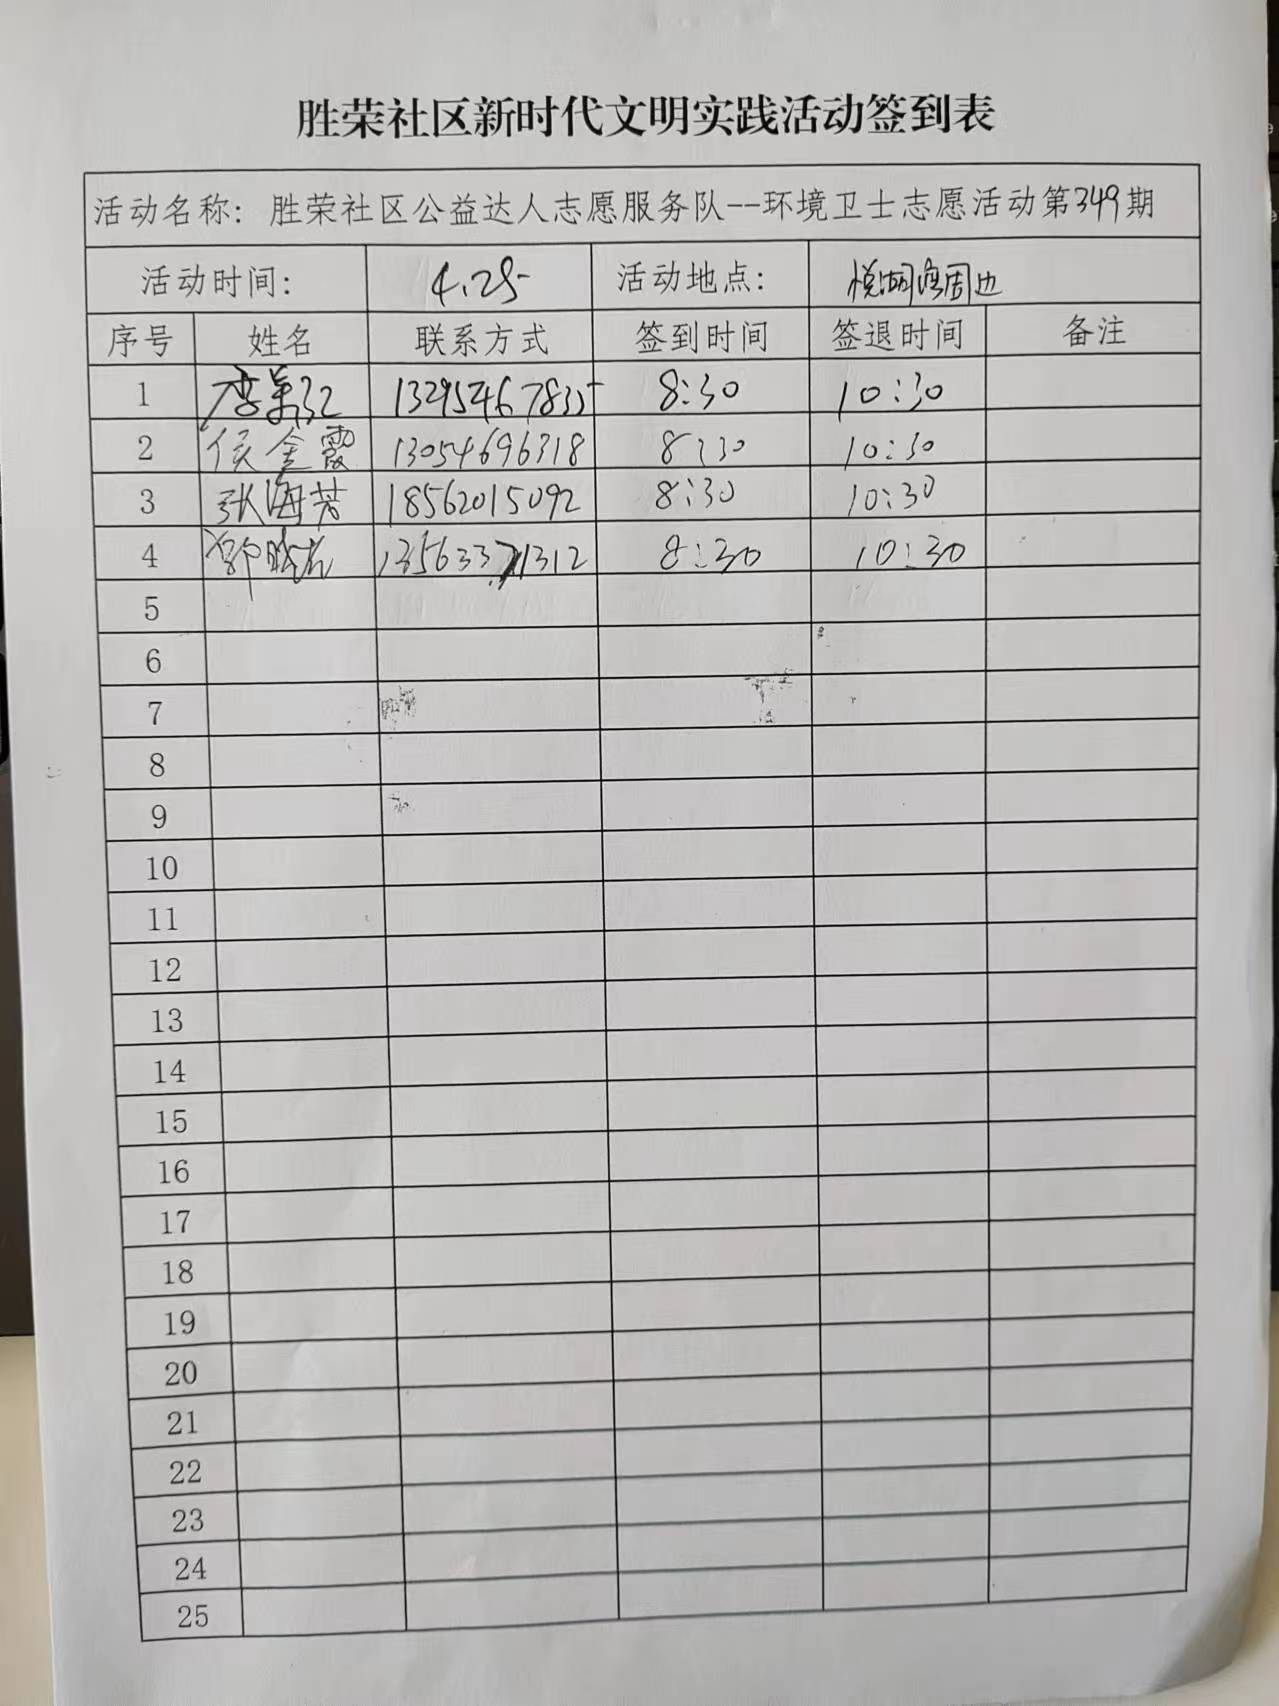 胜荣社区新时代文明实践活动签到表
活动名称：胜荣社区公益达人志愿服务队--环境卫士志愿活动第349期
活动时间： 4.25 活动地点： 悦湖湾周边
序号 姓名 联系方式 签到时间 签退时间 备注
1 李美红 13295467835 8:30 10:30
2 侯金霞 13054696318 8:30 10:30
3 张海芳 18562015092 8:30 10:30
4 郭 13563371312 8:30 10:30
5
6
7
8
9
10
11
12
13
14
15
16
17
18
19
20
21
22
23
24
25